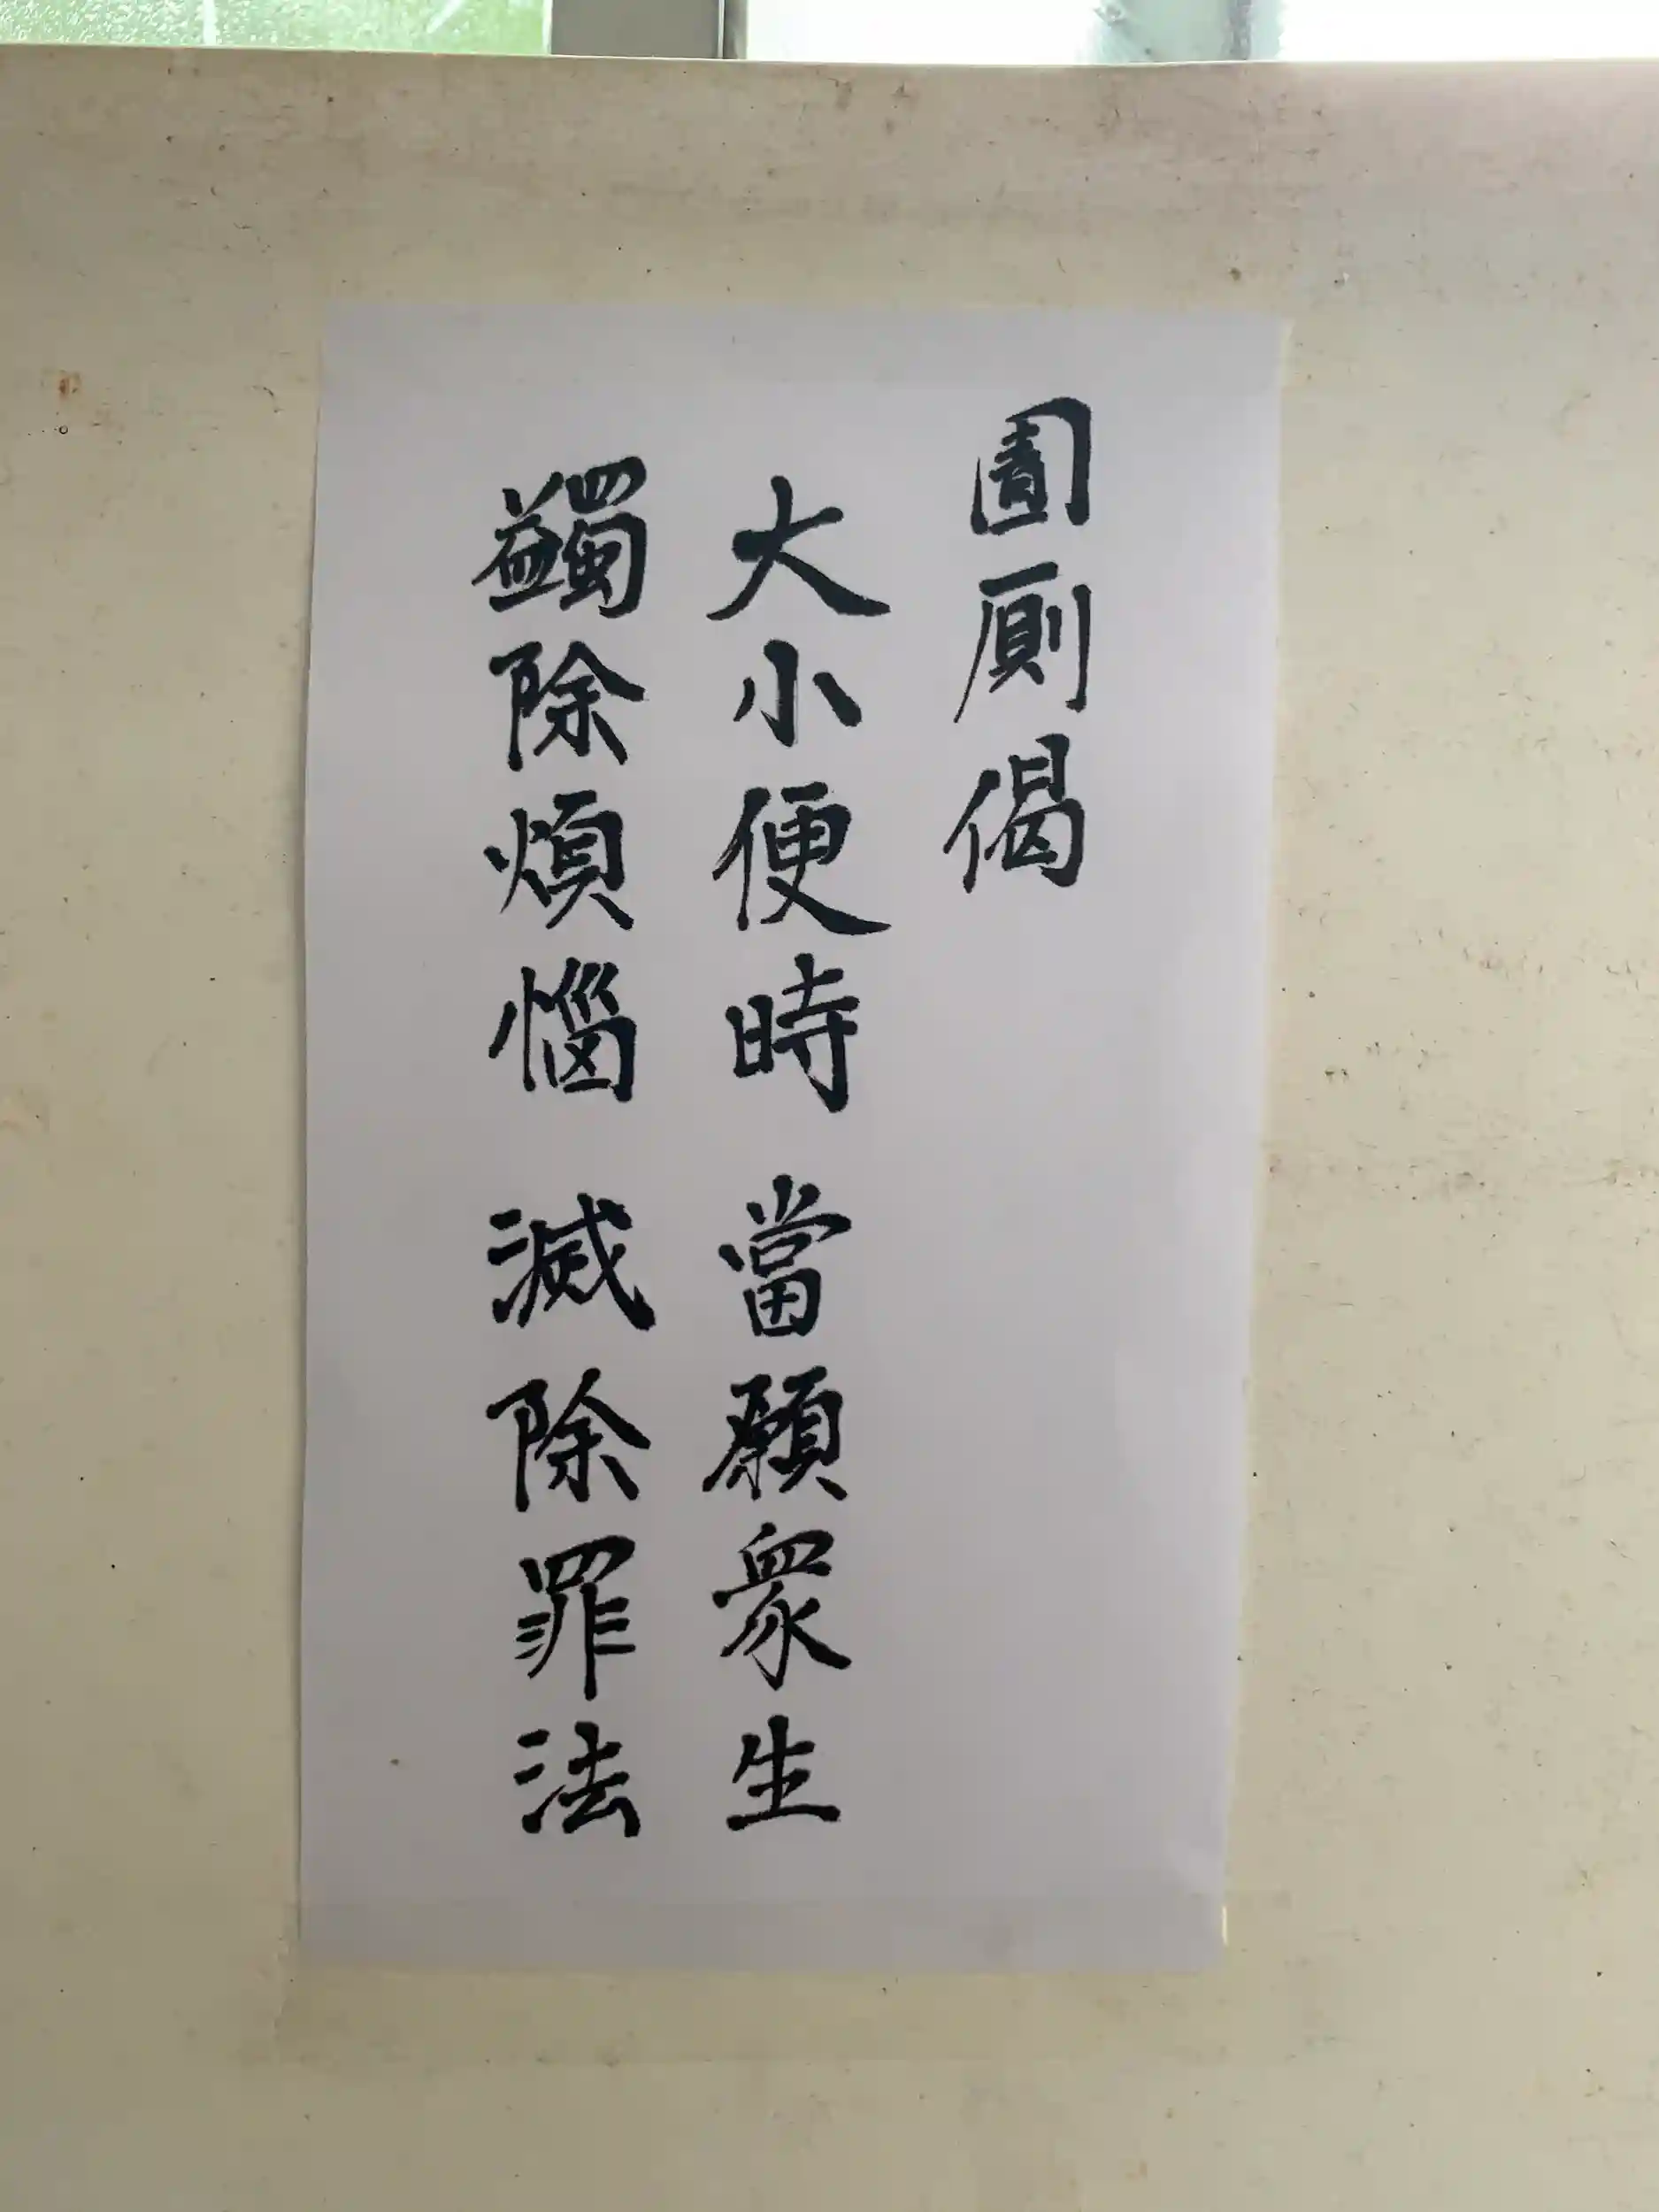 圊厠偈
大小便時 當願衆生
蠲除煩惱 滅除罪法